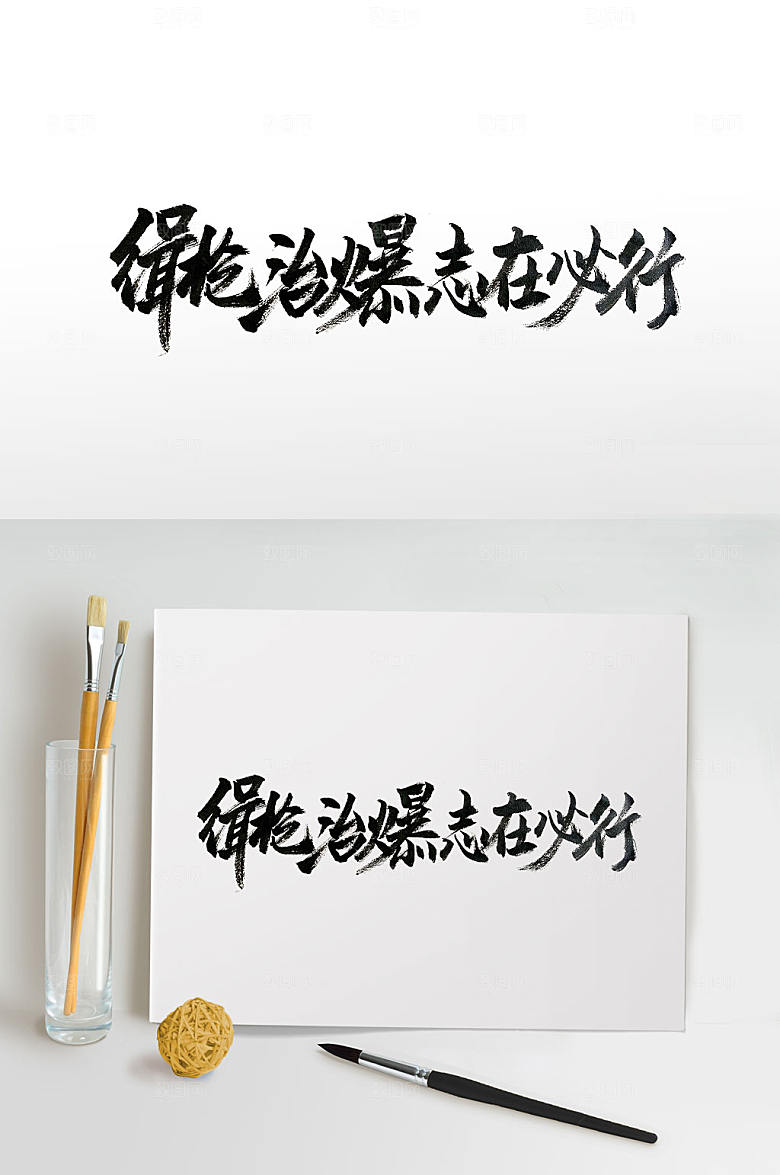 缉枪治爆志在必行
缉枪治爆志在必行